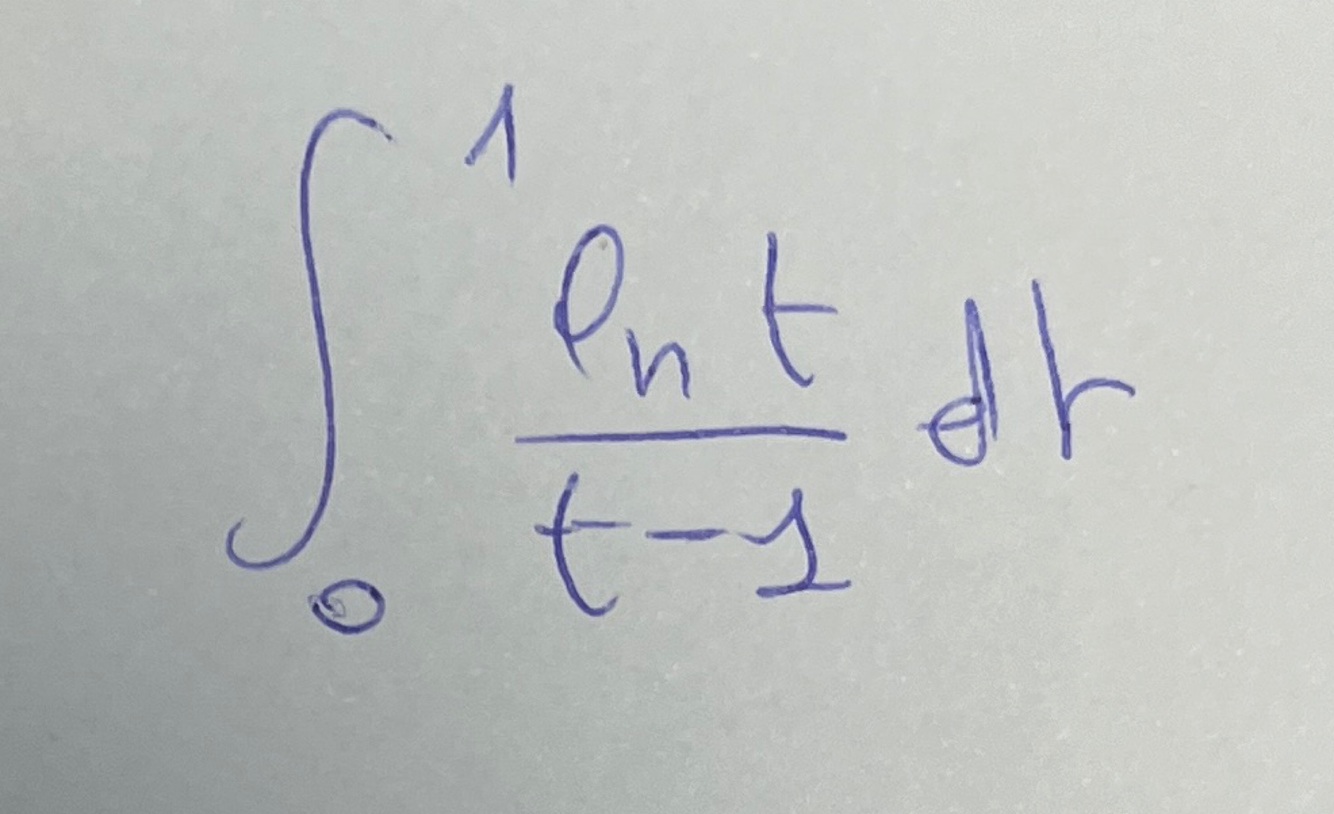 ∫₀¹ ln t / (t - 1) dt